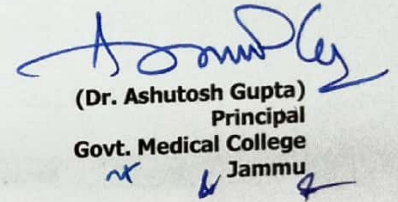 (Dr. Ashutosh Gupta)
Principal
Govt. Medical College
Jammu